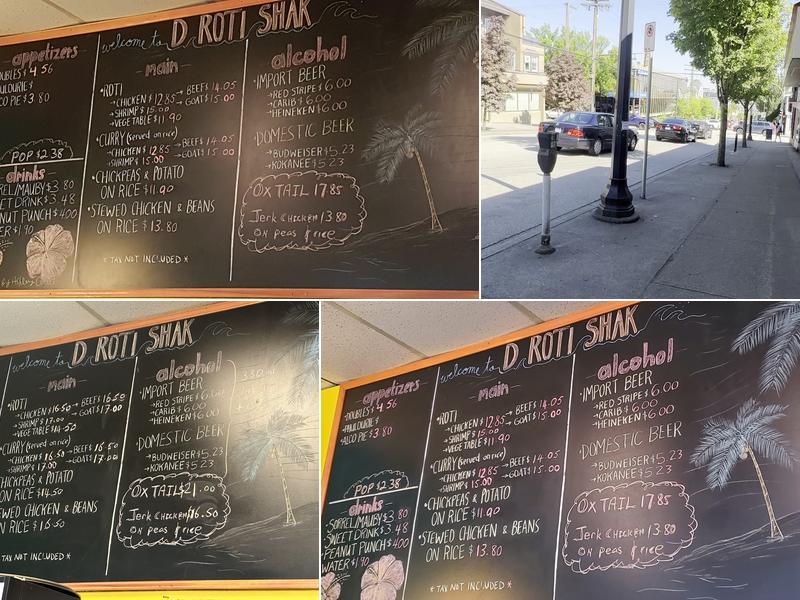 welcome to D ROTI SHAK
appetizers
DOUBLES $4.56
ALCO PIE $3.80
POP $2.38
drinks
SORREL/MAUBY $3.80
SWEET DRINK $3.48
PEANUT PUNCH $4.00
main
•ROTI
→CHICKEN $12.85 →BEEF $14.05
→SHRIMP $15.00 →GOAT $15.00
→VEGETABLE $11.90
•CURRY (served on rice)
→CHICKEN $12.85 →BEEF $14.05
→SHRIMP $15.00 →GOAT $15.00
•CHICKPEAS & POTATO
ON RICE $11.90
•STEWED CHICKEN & BEANS
ON RICE $13.80
*TAX NOT INCLUDED*
alcohol
•IMPORT BEER
→RED STRIPE $6.00
→CARIB $6.00
→HEINEKEN $6.00
•DOMESTIC BEER
→BUDWEISER $5.23
→KOKANEE $5.23
OX TAIL 17.85
Jerk Chicken 13.80
on peas & rice
welcome to D ROTI SHAK
main
•ROTI
→CHICKEN $16.50 →BEEF $16.50
→SHRIMP $17.00 →GOAT $17.00
→VEGETABLE $14.50
•CURRY (served on rice)
→CHICKEN $16.50 →BEEF $16.50
→SHRIMP $17.00 →GOAT $17.00
CHICKPEAS & POTATO
ON RICE $14.50
STEWED CHICKEN & BEANS
ON RICE $16.50
TAX NOT INCLUDED*
alcohol
•IMPORT BEER
→RED STRIPE $6.00
→CARIB $6.00
→HEINEKEN $6.00
330 ml
•DOMESTIC BEER
→BUDWEISER $5.23
→KOKANEE $5.23
OX TAIL $21.00
Jerk Chicken $16.50
on peas & rice
welcome to D ROTI SHAK
appetizers
•DOUBLES $4.56
•PHULOURIE $
•ALCO PIE $3.80
POP $2.38
drinks
SORREL/MAUBY $3.80
SWEET DRINK $3.48
PEANUT PUNCH $4.00
WATER $1.90
main
•ROTI
→CHICKEN $12.85 →BEEF $14.05
→SHRIMP $15.00 →GOAT $15.00
→VEGETABLE $11.90
•CURRY (served on rice)
→CHICKEN $12.85 →BEEF $14.05
→SHRIMP $15.00 →GOAT $15.00
•CHICKPEAS & POTATO
ON RICE $11.90
•STEWED CHICKEN & BEANS
ON RICE $13.80
*TAX NOT INCLUDED*
alcohol
•IMPORT BEER
→RED STRIPE $6.00
→CARIB $6.00
→HEINEKEN $6.00
•DOMESTIC BEER
→BUDWEISER $5.23
→KOKANEE $5.23
OX TAIL 17.85
Jerk Chicken 13.80
on peas & rice